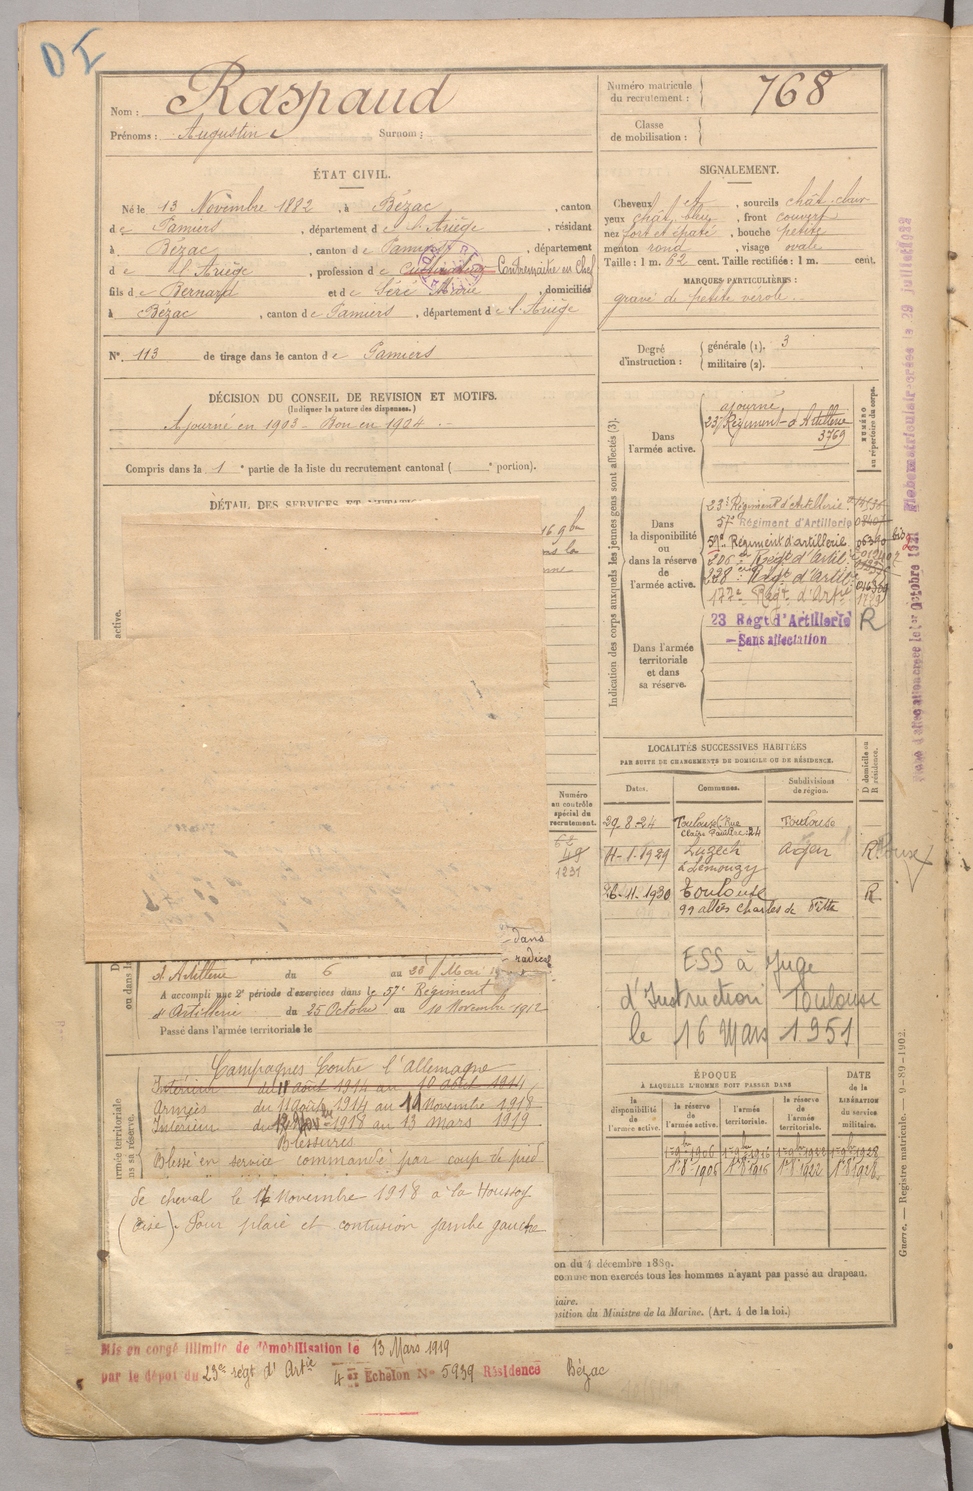 DI
Nom : Raspaud
Prénoms : Augustin Surnom :
Numéro matricule du recrutement : 768
Classe de mobilisation :
ÉTAT CIVIL.
Né le 13 Novembre 1882, à Bézac, canton
de Pamiers, département de l'Ariège, résidant
à Bézac, canton de Pamiers, département
de l'Ariège, profession de cultivateur Contremaitre en Chef
fils de Bernard et de Séré Marie, domiciliés
à Bézac, canton de Pamiers, département de l'Ariège
N°. 113 de tirage dans le canton de Pamiers
DÉCISION DU CONSEIL DE REVISION ET MOTIFS.
(Indiquer la nature des dispenses.)
Ajourné en 1903 - Bon en 1904
Compris dans la 1e partie de la liste du recrutement cantonal ( e portion).
DÉTAIL DES SERVICES ET
SIGNALEMENT.
Cheveux , sourcils chât clair
yeux chât bleu, front couvert
nez fort et épaté, bouche petite
menton rond, visage ovale
Taille : 1 m. 62 cent. Taille rectifiée : 1 m. cent.
MARQUES PARTICULIÈRES :
gravé de petite vérole
Degré d'instruction : générale (1). 3
militaire (2).
Indication des corps auxquels les jeunes gens sont affectés (3).
NUMÉRO au répertoire du corps.
Dans l'armée active.
ajourné
23e Régiment d'Artillerie
3769
Dans la disponibilité ou dans la réserve de l'armée active.
23e Régiment d'Artillerie
57e Régiment d'Artillerie
59e Régiment d'artillerie 06390 bis
206e Régt d'Artil
238e Régt d'Artil
177e Régt d'Artie
23 Régt d'Artillerie R
Sans affectation
Dans l'armée territoriale et dans sa réserve.
LOCALITÉS SUCCESSIVES HABITÉES
PAR SUITE DE CHANGEMENTS DE DOMICILE OU DE RÉSIDENCE.
Dates. Communes. Subdivisions de région. D domicile ou R résidence.
29-8-24 Toulouse Rue Claire Pauilhac 24 Toulouse
11-1-1929 Luzech à Lemouzy Agen R
26-11-1930 Toulouse R
99 allées Charles de Fitte
ESS à Juge
d'Instruction Toulouse
le 16 Mars 1951
Numéro au contrôle spécial du recrutement.
49
1231
dans
radical
d'Artillerie du 6 au 28 Mai
A accompli une 2e période d'exercices dans le 57e Régiment
d'Artillerie du 25 Octobre au 10 Novembre 1912
Passé dans l'armée territoriale le
Campagnes Contre l'Allemagne
Intérieur du 11 août 1914 au 10 août 1914
Armées du 11 août 1914 au 11 Novembre 1918
Intérieur du 12 Nov 1918 au 13 mars 1919
Blessures
Blessé en service commandé par coup de pied
de cheval le 14 Novembre 1918 à la Houssoy
(Oise). Pour plaie et contusion jambe gauche
ÉPOQUE
À LAQUELLE L'HOMME DOIT PASSER DANS
la disponibilité de l'armée active. la réserve de l'armée active. l'armée territoriale. la réserve de l'armée territoriale. DATE de la LIBÉRATION du service militaire.
1er 8bre 1906 1er 8bre 1916 1er 8bre 1922 1er 8bre 1928
on du 4 décembre 1889.
comme non exercés tous les hommes n'ayant pas passé au drapeau.
iaire.
osition du Ministre de la Marine. (Art. 4 de la loi.)
Mis en congé illimité de démobilisation le 13 Mars 1919
par le dépôt du 23e régt d'Artie 4e Echelon No 5939 Résidence Bézac
Guerre. — Registre matricule. — 9-89-1902.